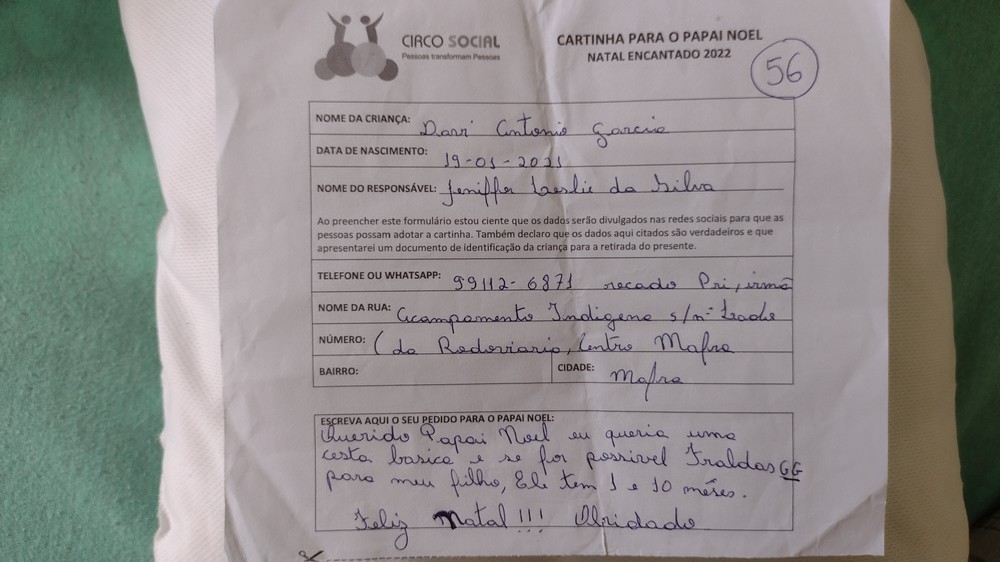 CIRCO SOCIAL
Pessoas transformam Pessoas
CARTINHA PARA O PAPAI NOEL
NATAL ENCANTADO 2022
56
NOME DA CRIANÇA: Davi Antonio Garcia
DATA DE NASCIMENTO: 19-01-2021
NOME DO RESPONSÁVEL: Jeniffer Leslie da Silva
Ao preencher este formulário estou ciente que os dados serão divulgados nas redes sociais para que as
pessoas possam adotar a cartinha. Também declaro que os dados aqui citados são verdadeiros e que
apresentarei um documento de identificação da criança para a retirada do presente.
TELEFONE OU WHATSAPP: 99112-6871 recado Pri, irmã
NOME DA RUA: Acampamento Indigena s/nº
NÚMERO: (da Rodoviaria, Centro Mafra
BAIRRO:
CIDADE: Mafra
ESCREVA AQUI O SEU PEDIDO PARA O PAPAI NOEL:
Querido Papai Noel eu queria uma
cesta basica e se for possivel Fraldas GG
para meu filho, Ele tem 1 e 10 mêses.
Feliz Natal!!! Obridado